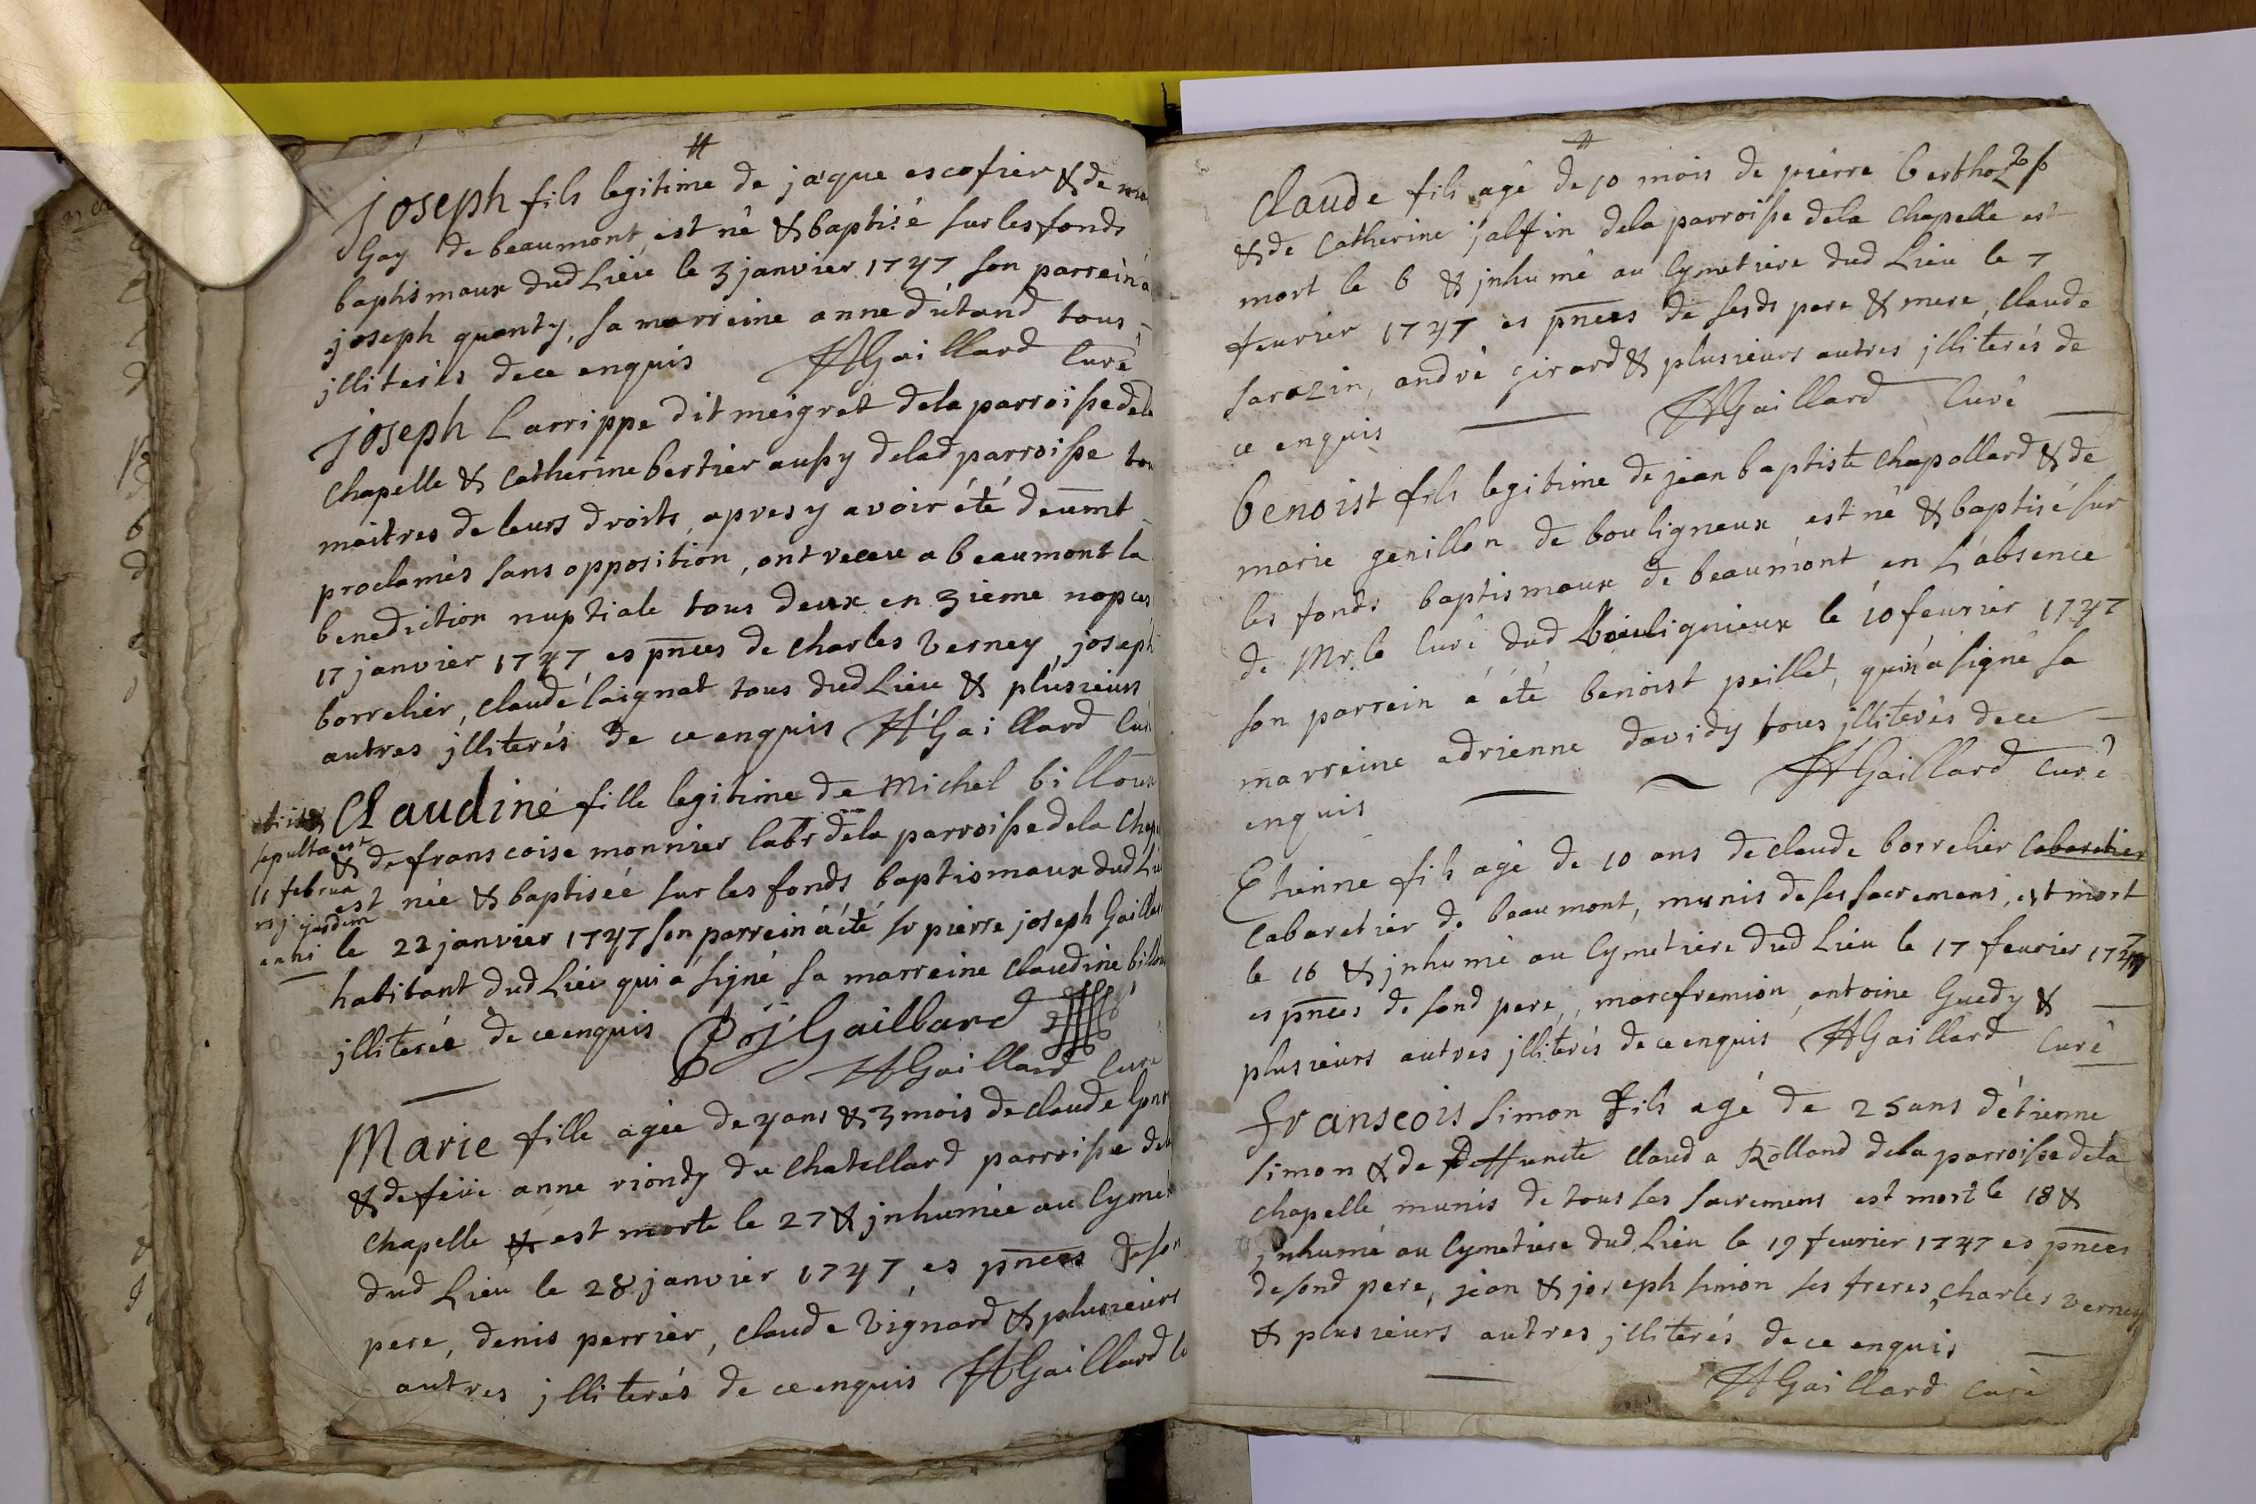 Joseph fils legitime de jaque escofier & de
Gay de beaumont est né & baptisé sur les fonds
baptismaux dud Lieu le 3 janvier 1747 son parrein a
joseph quanty, sa marreine anne dutand tous
jlliterés de ce enquis HGaillard Curé
Joseph Larrippe dit meigret dela parroisse dela
chapelle & Catherine bertier aussy delad parroisse tou
maitres de leurs droits, apres y avoir été deumt
proclamés sans opposition, ont receu a beaumont la
benediction nuptiale tous deux en 3ieme nopces
17 janvier 1747 es pnces de charles Verney, joseph
borrelier, claude laignat tous dud Lieu & plusieurs
autres jlliterés de ce enquis HGaillard Cur
Claudine fille legitime de Michel billoux
& de franscoise monnier labr dela parroisse dela Chape
est née & baptiseé sur les fonds baptismaux dud Lieu
le 22 janvier 1747 son parrein a été sr pierre joseph Gaillard
habitant dud Lieu qui a signé sa marreine Claudine billoux
jlliterée de ce enquis PjGaillard
HGaillard Curé
sepulta est
11 februa
anni
Marie fille agée de 4 ans & 3 mois de claude
& de feüe anne riondy du Chatellard parroisse dela
chapelle & est morte le 27 & jnhumée au Cymet
dud Lieu le 28 janvier 1747 es pnces de son
pere, denis perrier, claude Vignard & plusieurs
autres jlliterés de ce enquis HGaillard C
26
Claude fils agé de 10 mois de pierre bertho
& de Catherine jalfin dela parroisse dela chapelle est
mort le 6 & jnhumé au Cymetiere dud Lieu le 7
feurier 1747 es pnces de sesds pere & mere, claude
sarazin, andré girard & plusieurs autres jlliterés de
ce enquis HGaillard Curé
Benoist fils legitime de jean baptiste chapollard & de
marie genillon de bouligneux est né & baptisé sur
les fonds baptismaux de beaumont en L'absence
de Mr. le Curé dud Bouligneux le 10 feurier 1747
son parrein a été benoist peillet, qui n'a signé sa
marreine adrienne davidy tous jlliterés de ce
enquis HGaillard Curé
Etienne fils agé de 10 ans de claude borrelier Cabaretier
Cabaretier de beaumont, munis de ses sacremens, est mort
le 16 & jnhumé au Cymetiere dud Lieu le 17 feurier 1747
es pnces de sond pere, marc fremion, antoine Guedy &
plusieurs autres jlliterés de ce enquis HGaillard Curé
Franscois Simon fils agé de 25 ans d'étienne
simon & de deffuncte clauda Rolland dela parroisse dela
chapelle munis de tous ses sacremens est mort le 18 &
jnhumé au Cymetiere dud Lieu le 19 feurier 1747 es pnces
de sond pere, jean & joseph simon ses freres, charles Verney
& plusieurs autres jlliterés de ce enquis
HGaillard Curé